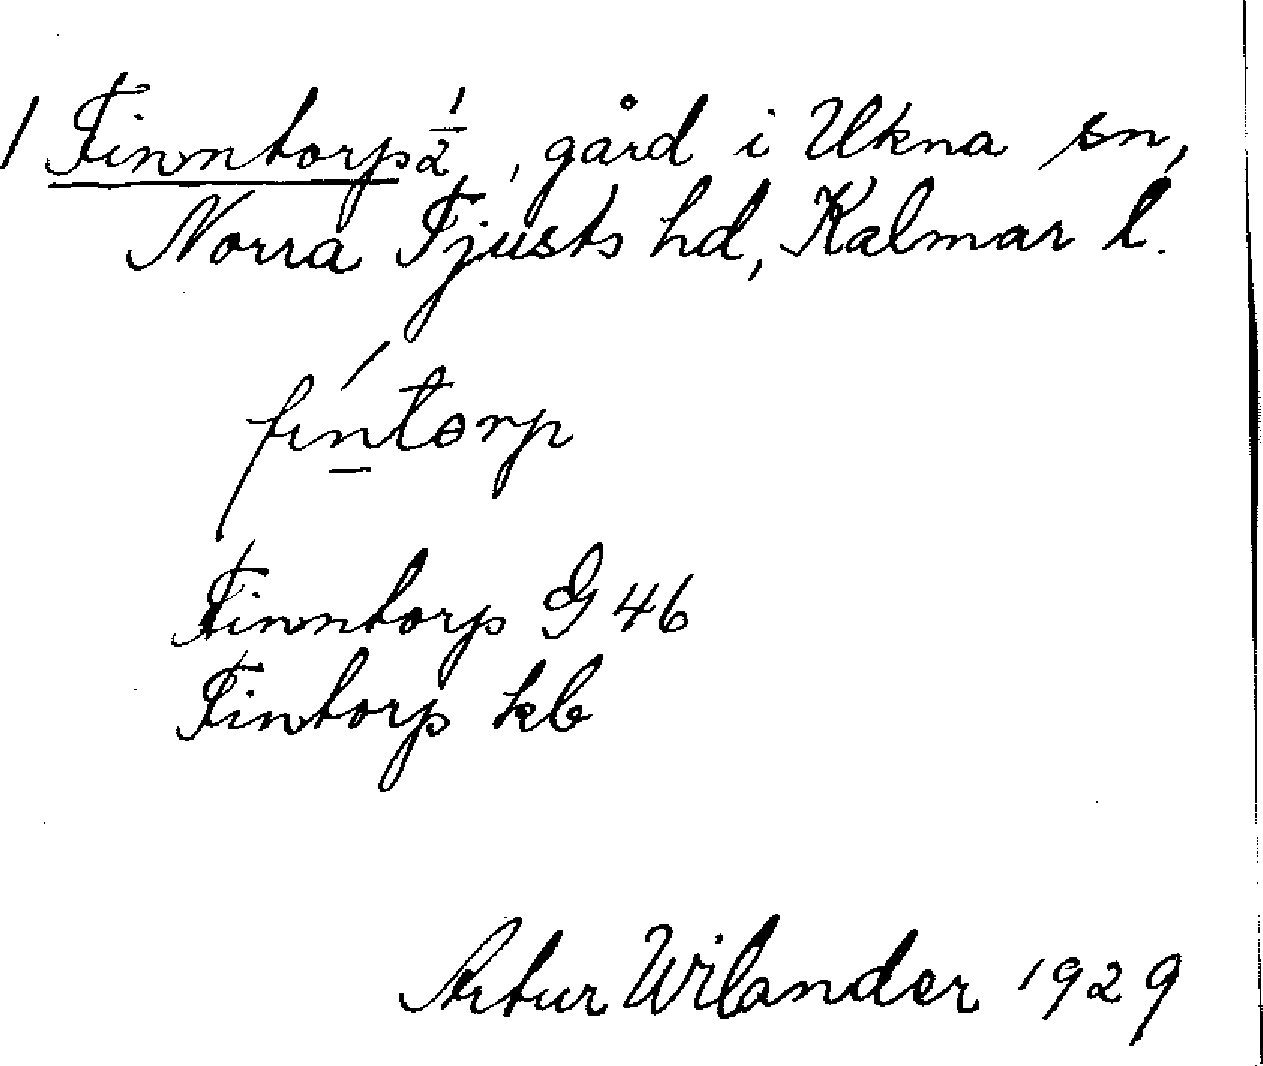 / Finntorp 1/2, gård i Ukna sn,
Norra Tjusts hd, Kalmar l.
fíntorp
Finntorp G 46
Fintorp kb
Artur Wilander 1929